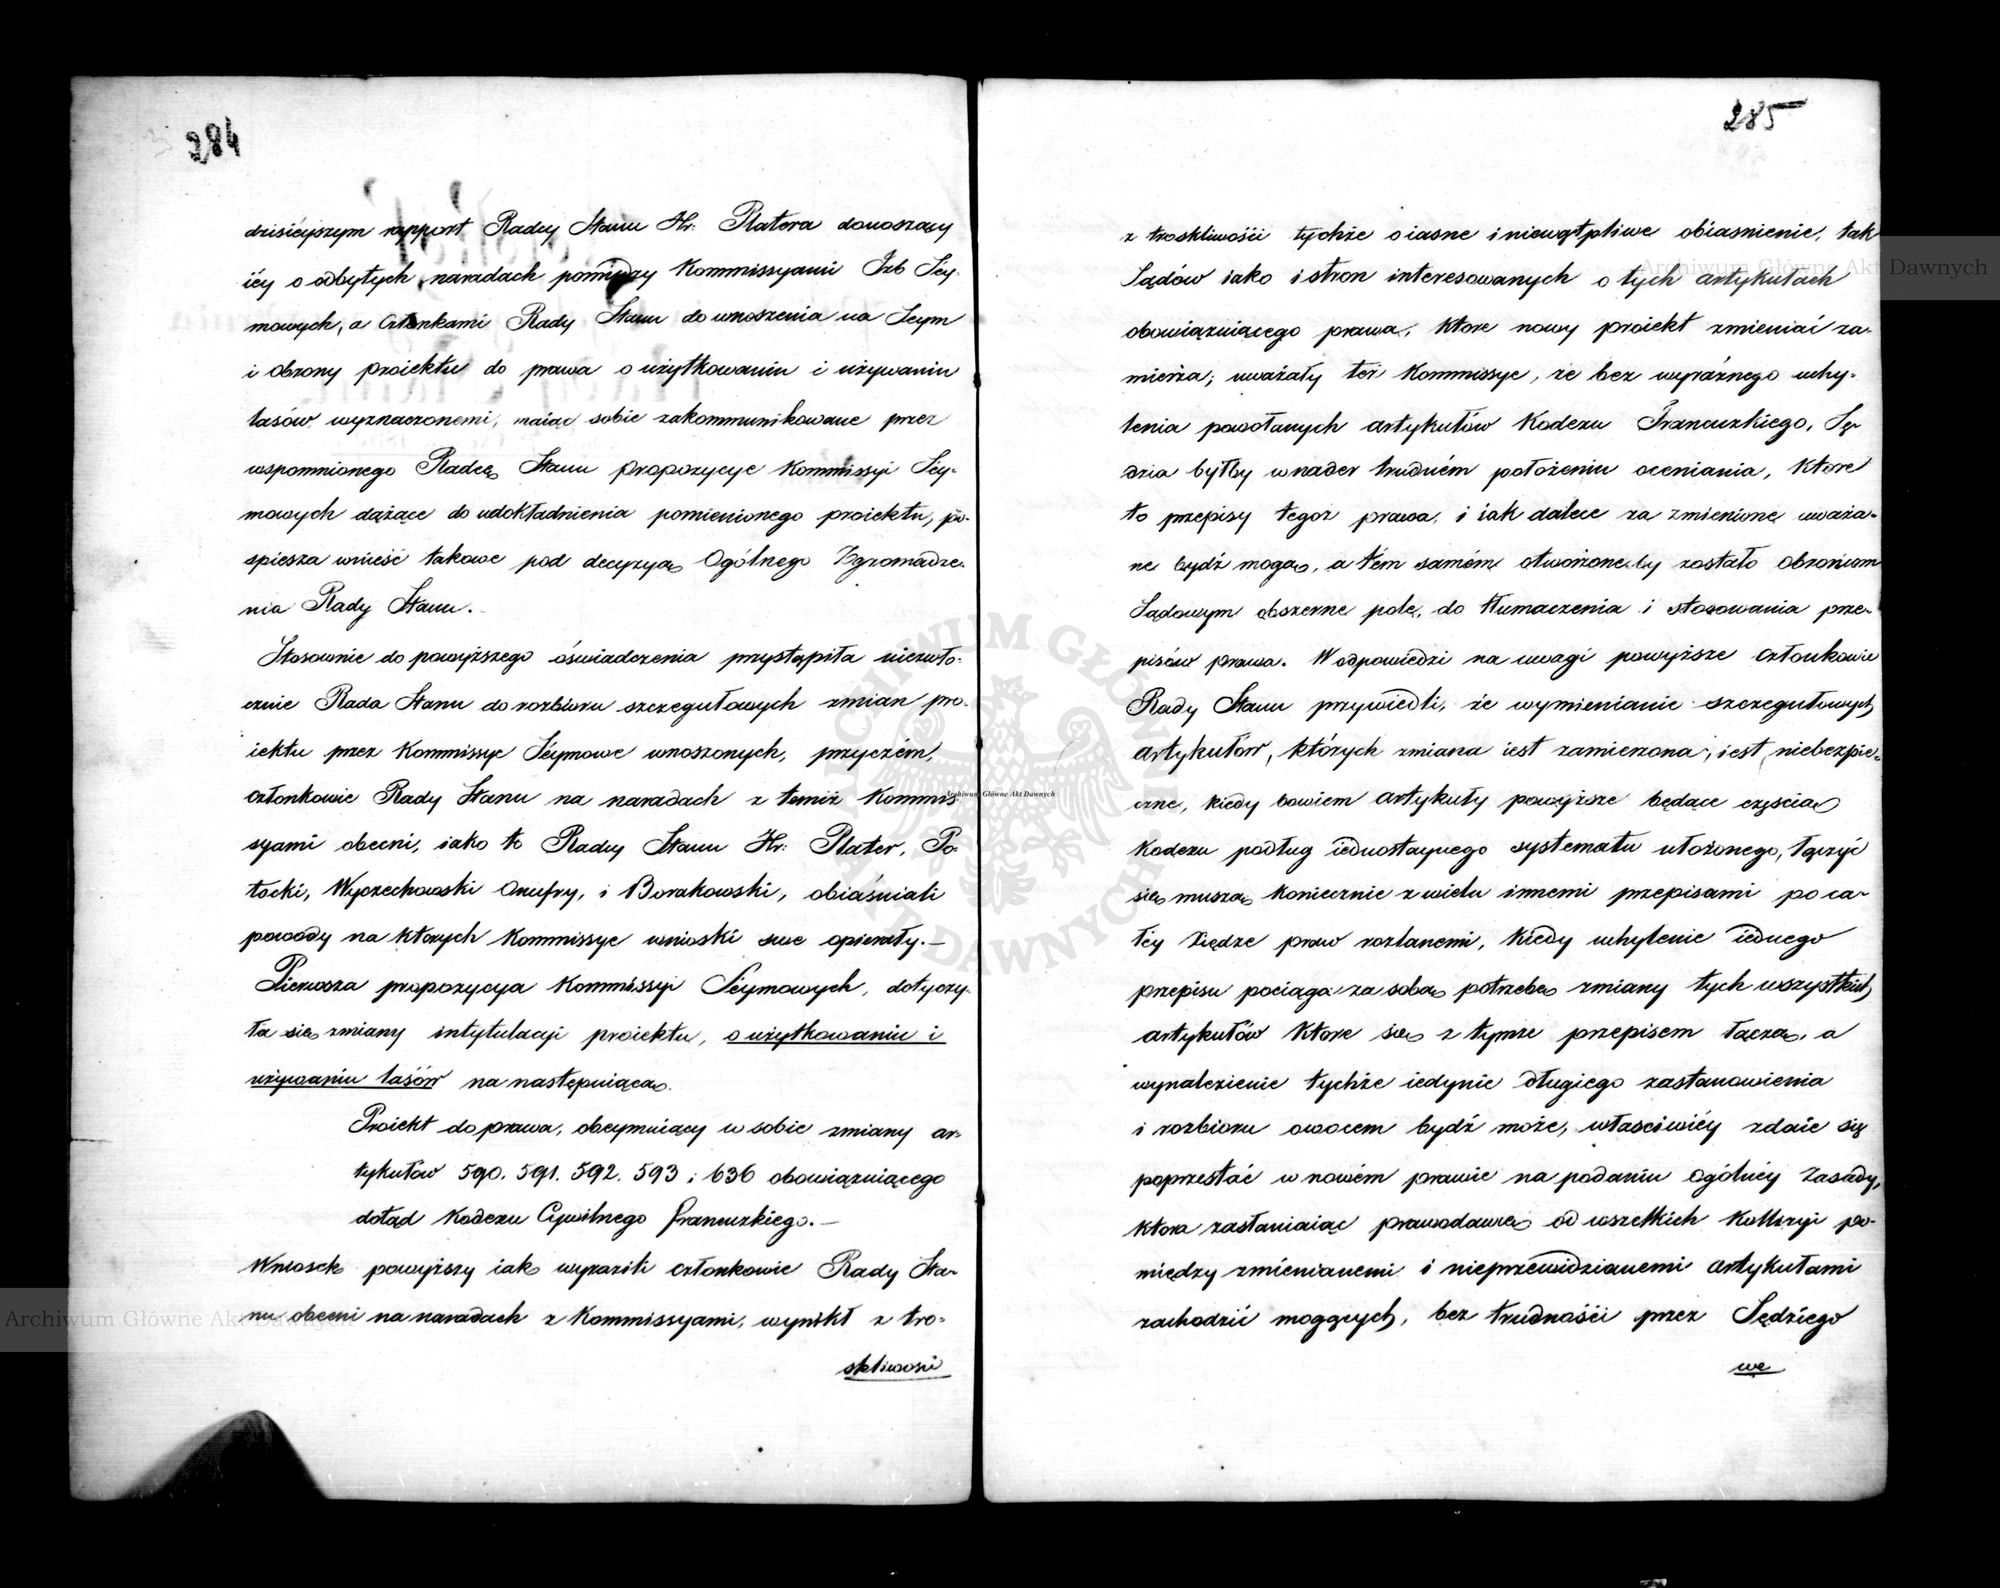 284
dzisiéyszym rapport Radcy Stanu Hr: Platera donoszący
iéy o odbytych naradach pomiędzy Kommissyami Izb Sey-
mowych, a Członkami Rady Stanu do wnoszenia na Seym
i obrony proiektu do prawa o użytkowaniu i używaniu
lasów wyznaczonemi, maiąc sobie zakommunikowane przez
wspomnionego Radcę Stanu propozycye Kommissyi Sey-
mowych dążące do udokładnienia pomienionego proiektu, po-
spiesza wnieść takowe pod decyzyą Ogólnego Zgromadze-
nia Rady Stanu.
Stosownie do powyższego oświadczenia przystąpiła niezwło-
cznie Rada Stanu do rozbioru szczegułowych zmian pro-
iektu przez Kommissye Séymowe wnoszonych, przyczém,
członkowie Rady Stanu na naradach z temiż Kommis-
syami obecni, iako to Radcy Stanu Hr: Plater, Po-
tocki, Wyczechowski Onufry, i Borakowski, obiaśniali
powody na których Kommissye wnioski swe opierały.-
Pierwsza propozycya Kommissyi Seymowych, dotyczy-
ła się zmiany intytulacyi proiektu, o użytkowaniu i
używaniu lasów na następuiącą.
Proiekt do prawa, obeymuiący w sobie zmiany ar-
tykułów 590. 591. 592. 593 i 636 obowiązuiącego
dotąd Kodexu Cywilnego francuzkiego.-
Wniosek powyższy iak wyrazili członkowie Rady Sta-
nu obecni na naradach z Kommissyami, wynikł z tro-
skliwości
285
z troskliwości tychże o iasne i niewątpliwe obiasnienie, tak
Sądów iako i stron interesowanych o tych artykułach
obowiązuiącego prawa, które nowy proiekt zmieniać za-
mierza; uważały też Kommissye, że bez wyraźnego uchy-
lenia powołanych artykułów Kodexu Francuzkiego, Sę-
dzia byłby w nader trudném położeniu oceniania, które
to przepisy tegoż prawa, i iak dalece za zmienione uważa-
ne bydź mogą, a tém samém otworzone by zostało obrońcom
Sądowym obszerne pole, do tłumaczenia i stosowania prze-
pisów prawa. W odpowiedzi na uwagi powyższe członkowie
Rady Stanu przywiedli, że wymienianie szczegułowych
artykułów, których zmiana iest zamierzona, iest niebezpie-
czne, kiedy bowiem artykuły powyższe będące częścią
Kodexu podług iednostaynego systematu ułożonego, łączyć
się muszą koniecznie z wielu innemi przepisami po ca-
łéy księdze praw rozlanemi, kiedy uchylenie iednego
przepisu pociąga za sobą potrzebę zmiany tych wszystkich
artykułów które się z tymże przepisem łączą, a
wynalezienie tychże iedynie długiego zastanowienia
i rozbioru owocem bydź może, właściwiéy zdaie się
poprzestać w nowém prawie na podaniu ogólnéy zasady,
która zasłaniaiąc prawodawcę od wszelkich Kollizyi po-
między zmienianemi i nieprzewidzianemi artykułami
zachodzić mogących, bez trudności przez Sędziego
we